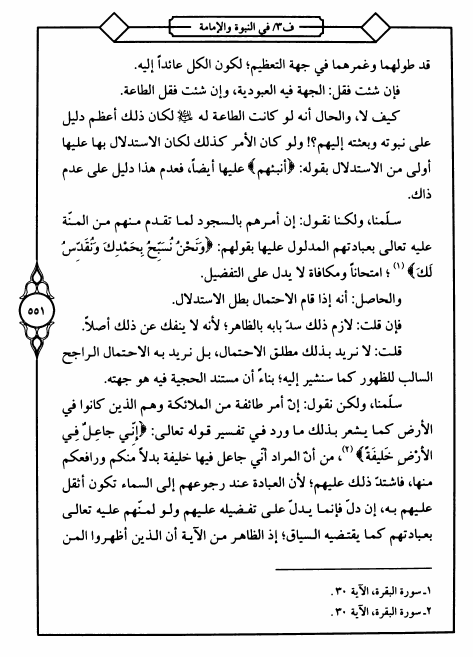 ف٣/ في النبوة والإمامة
قد طولهما وغمرهما في جهة التعظيم؛ لكون الكل عائداً إليه.
فإن شئت فقل: الجهة فيه العبودية، وإن شئت فقل الطاعة.
كيف لا، والحال أنه لو كانت الطاعة له ﷺ لكان ذلك أعظم دليل
على نبوته وبعثته إليهم؟! ولو كان الأمر كذلك لكان الاستدلال بها عليها
أولى من الاستدلال بقوله: ﴿أنبئهم﴾ عليها أيضاً، فعدم هذا دليل على عدم
ذاك.
سلّمنا، ولكنا نقول: إن أمرهم بالسجود لما تقدم منهم من المنّة
عليه تعالى بعبادتهم المدلول عليها بقولهم: ﴿وَنَحْنُ نُسَبِّحُ بِحَمْدِكَ وَنُقَدِّسُ
لَكَ﴾ (١)؛ امتحاناً ومكافاة لا يدل على التفضيل.
والحاصل: أنه إذا قام الاحتمال بطل الاستدلال.
فإن قلت: لازم ذلك سدّ بابه بالظاهر؛ لأنه لا ينفك عن ذلك أصلاً.
قلت: لا نريد بذلك مطلق الاحتمال، بل نريد به الاحتمال الراجح
السالب للظهور كما سنشير إليه؛ بناءً أن مستند الحجية فيه هو جهته.
سلّمنا، ولكن نقول: إنّ أمر طائفة من الملائكة وهم الذين كانوا في
الأرض كما يشعر بذلك ما ورد في تفسير قوله تعالى: ﴿إِنِّي جاعِلٌ فِي
الأرْضِ خَلِيفَةً﴾ (٢)، من أن المراد أنّي جاعل فيها خليفة بدلاً منكم ورافعكم
منها، فاشتدّ ذلك عليهم؛ لأن العبادة عند رجوعهم إلى السماء تكون أثقل
عليهم به، إن دلّ فإنما يدلّ على تفضيله عليهم ولو لمنّهم عليه تعالى
بعبادتهم كما يقتضيه السياق؛ إذ الظاهر من الآية أن الذين أظهروا المن
٥٥١
١ـ سورة البقرة، الآية ٣٠.
٢ـ سورة البقرة، الآية ٣٠.